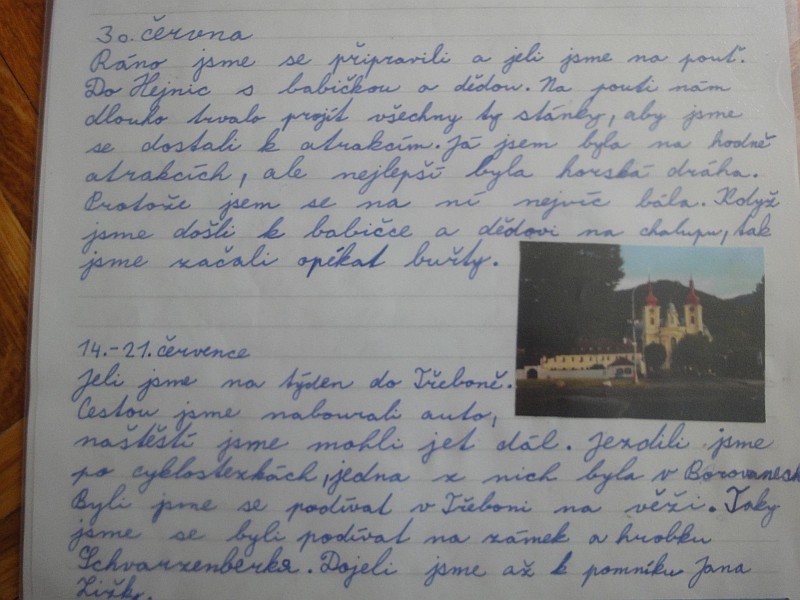 30. června
Ráno jsme se připravili a jeli jsme na pouť.
Do Hejnic s babičkou a dědou. Na pouti nám
dlouho trvalo projít všechny ty stánky, aby jsme
se dostali k atrakcím. Já jsem byla na hodně
atrakcích, ale nejlepší byla horská dráha.
Protože jsem se na ní nejvíc bála. Když
jsme došli k babičce a dědovi na chalupu, tak
jsme začali opékat buřty.
14.-21. července
Jeli jsme na týden do Třeboně.
Cestou jsme nabourali auto,
naštěstí jsme mohli jet dál. Jezdili jsme
po cyklostezkách, jedna z nich byla v Borovanech
Byli jsme se podívat v Třeboni na věži. Taky
jsme se byli podívat na zámek a hrobku
Schvarzenberka. Dojeli jsme až k pomníku Jana
Žižky.